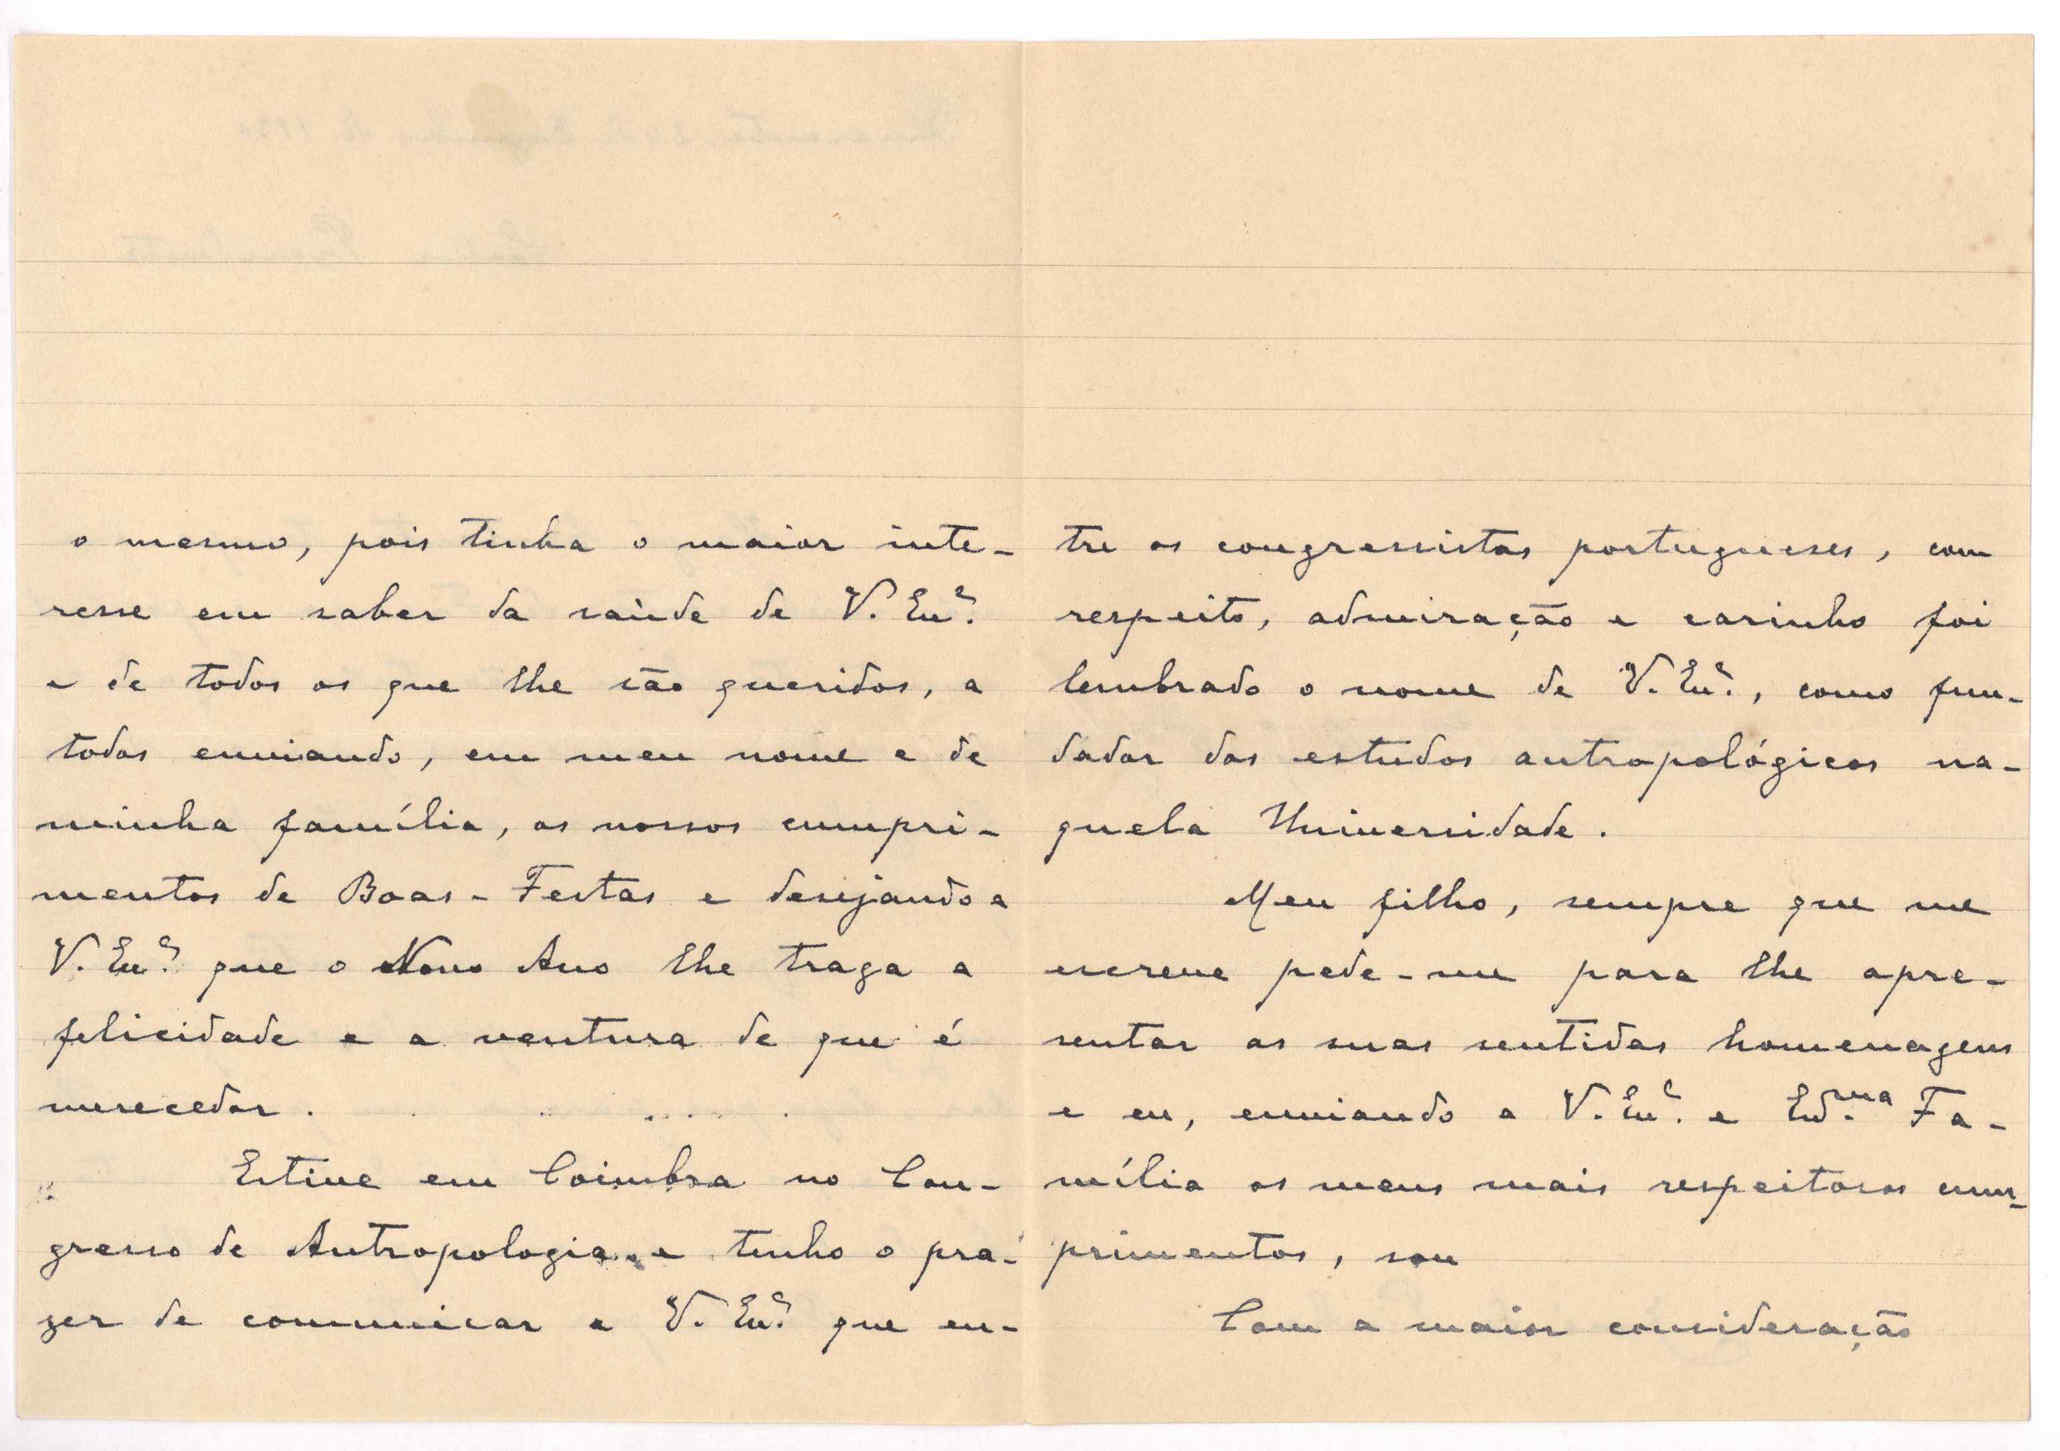 o mesmo, pois tinha o maior inte-
resse em saber da saùde de V. Exª.
e de todos os que lhe são queridos, a
todos enviando, em meu nome e de
minha família, os nossos cumpri-
mentos de Boas-Festas e desejando a
V. Exª. que o Novo Ano lhe traga a
felicidade e a ventura de que é
merecedor.
Estive em Coimbra no Con-
gresso de Antropologia e tenho o pra-
zer de comunicar a V. Exª. que en-
tre os congressistas portugueses, com
respeito, admiração e carinho foi
lembrado o nome de V. Exª., como fun-
dador dos estudos antropológicos na-
quela Universidade.
Meu filho, sempre que me
escreve pede-me para lhe apre-
sentar as suas sentidas homenagens
e eu, enviando a V. Exª. e Ex.ma Fa-
mília os meus mais respeitosos cum-
primentos, sou
Com a maior consideração